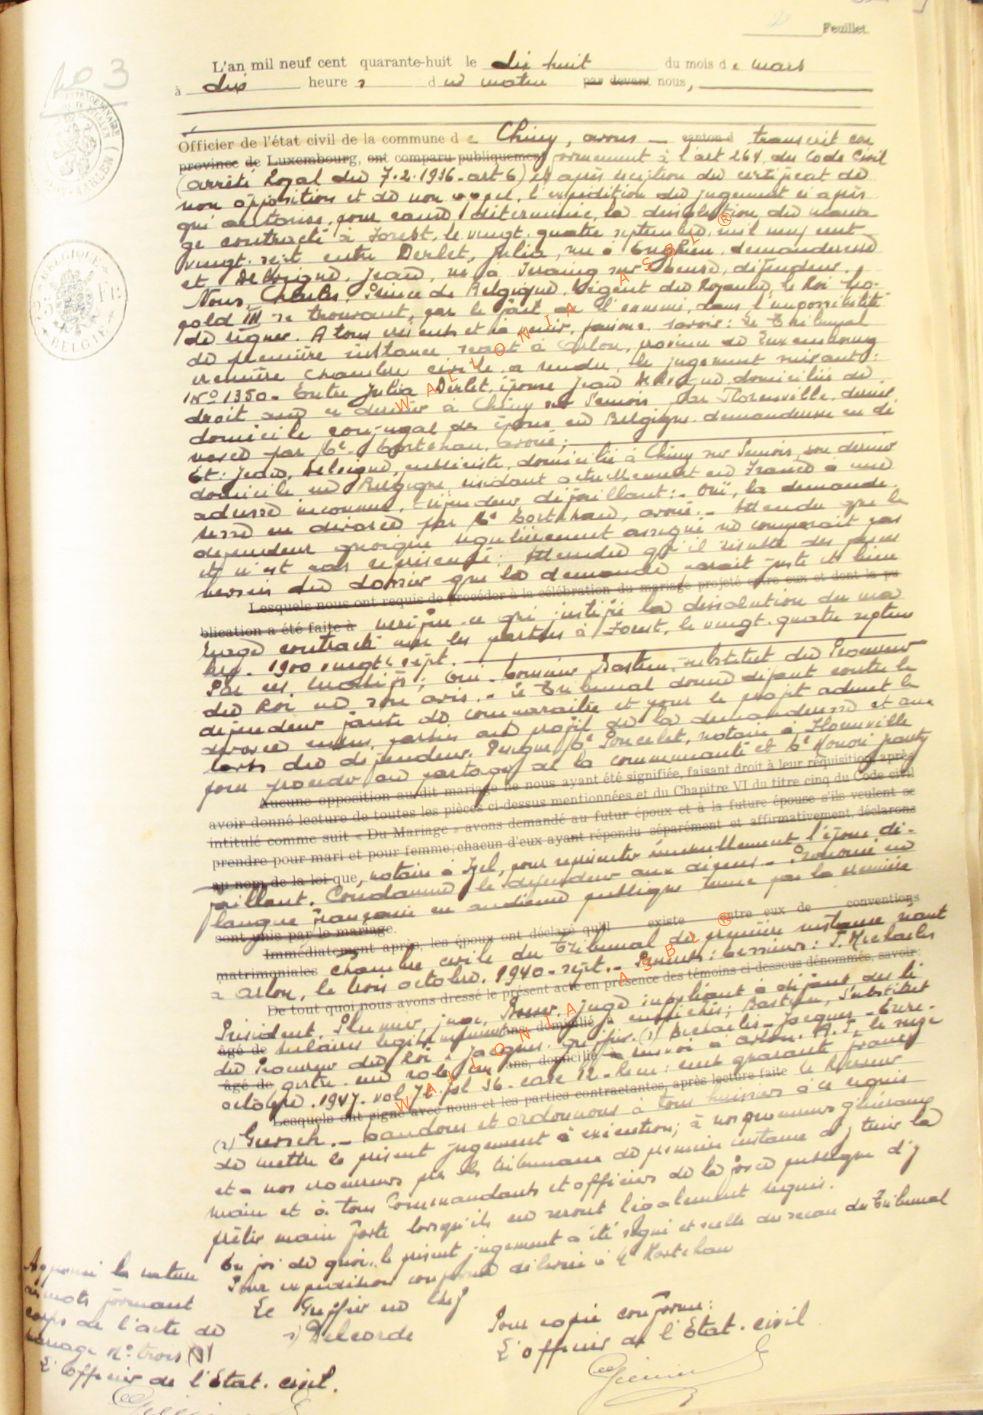 Feuillet.
N° 3
L'an mil neuf cent quarante-huit le dix huit du mois de mars
à dix heures du matin par devant nous,
Officier de l'état civil de la commune de Chiny, avons canton d transcrit en
province de Luxembourg, ont comparu publiquement conformément à l'art 264 du Code Civil
(arrêté Royal du 7.2.1936-art 6) et après réception du certificat de
non opposition et de non appel, l'expédition du jugement ci après
qui autorise, pour cause déterminée, la dissolution du maria
ge contracté à Forest, le vingt-quatre septembre mil neuf cent
vingt-sept entre Derlet, Julia, née à Enghien demanderesse
et Delvigne, Jean, né à Jemeppe sur Meuse, défendeur.
Nous, Charles, Prince de Belgique, Régent du Royaume, le Roi Léo-
pold III se trouvant, par le fait de l'ennemi, dans l'impossibilité
de régner. A tous présents et à venir, faisons savoir: Le Tribunal
de première instance séant à Arlon, province de Luxembourg
première chambre civile a rendu le jugement suivant:
N° 1350 - Entre Julia Derlet, épouse Jean Delvigne, domiciliée de
droit avec ce dernier à Chiny sur Semois, par Florenville, dernier
domicile conjugal des époux en Belgique, demanderesse en di
vorce par Me Kortehau, avoué;
Et: Jean, Delvigne, domicilié à Chiny sur Semois, son dernier
domicile en Belgique, résidant actuellement en France à une
adresse inconnue, défendeur, défaillant:- Ouï, la demande-
resse en divorce par Me Kortehau, avoué.- Attendu que le
défendeur quoique régulièrement assigné ne comparait pas
et n'est pas représenté; Attendu qu'il résulte des pièces
versées du dossier que la demande parait juste et bien
Lesquels nous ont requis de procéder à la célébration du mariage projeté entre eux et dont la pu
blication a été faite à vérifiée ce qui justifie la dissolution du ma
riage contracté par les parties à Forest, le vingt-quatre septem
bre 1900 vingt-sept.
Par ces motifs; Ouï Monsieur Bastien, substitut du Procureur
du Roi en son avis.- Le Tribunal donne défaut contre le
défendeur faute de comparaître et pour le profit admet le
divorce entre parties au profit de la demanderesse et aux
torts du défendeur. Désigne Me Poncelet, notaire à Florenville
pour procéder au partage de la communauté et Me Honoré
Aucune opposition au dit mariage ne nous ayant été signifiée, faisant droit à leur réquisition, après
avoir donné lecture de toutes les pièces ci-dessus mentionnées et du Chapitre VI du titre cinq du Code civil
intitulé comme suit « Du Mariage » avons demandé au futur époux et à la future épouse s'ils veulent se
prendre pour mari et pour femme; chacun d'eux ayant répondu séparément et affirmativement, déclarons
au nom de la loi que, notaire à Izel, pour représenter éventuellement l'époux dé-
faillant. Condamne le défendeur aux dépens.- Prononcé en
langue Française en audience publique tenue par la première
sont unis par le mariage.
Immédiatement après, les époux ont déclaré qu'il existe entre eux de conventions
matrimoniales chambre civile du Tribunal de première instance séant
à Arlon, le trois octobre 1940-sept.- Présents: Messieurs: J. Michaelis
De tout quoi nous avons dressé le présent acte en présence des témoins ci-dessous dénommés, savoir:
Président, Plumier, juge, juge suppléant à défaut des ti-
âgé de tulaires légitimement ans, domicilié empêchés; Bastien, Substitut
du Procureur du Roi - Jacques, Greffier. (s) Michaelis - Jacques - Enre-
âgé de gistré un rôle ans, domicilié renvoi à Arlon, A.J., le seize
octobre 1947. vol 72 fol 36. case 12. Reçu: cent quarante francs
Lesquels ont signé avec nous et les parties contractantes, après lecture faite le Receveur
(s) Guersch.- Mandons et ordonnons à tous huissiers à ce requis
de mettre le présent jugement à exécution; à nos procureurs généraux
et à nos procureurs près les tribunaux de première instance d'y tenir la
main et à tous Commandants et officiers de la force publique d'y
prêter main forte lorsqu'ils en seront légalement requis.
En foi de quoi, le présent jugement a été signé et scellé du sceau du Tribunal
Pour expédition conforme délivrée à Me Kortehau
Le Greffier en chef
s) Delcorde
Pour copie conforme:
L'officier de l'Etat-civil
Approuvé la rature
mots formant
corps de l'acte de
mariage N° trois (3)
L'officier de l'Etat-civil.
WALLONIA ASBL ®
WALLONIA ASBL ®
BELGIQUE